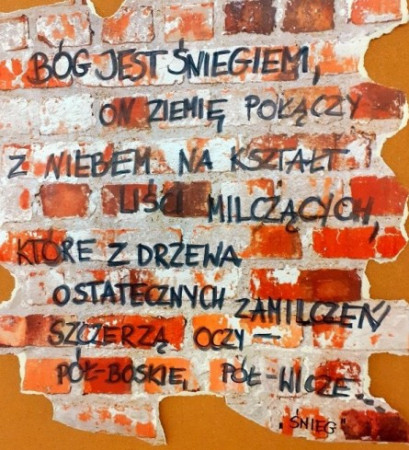 BÓG JEST ŚNIEGIEM,
ON ZIEMIĘ POŁĄCZY
Z NIEBEM NA KSZTAŁT
LIŚCI MILCZĄCYCH,
KTÓRE Z DRZEWA
OSTATECZNYCH ZAMILCZEŃ
SZCZERZĄ OCZY —
PÓŁ-BOSKIE, PÓŁ-WICZE...
"ŚNIEG"